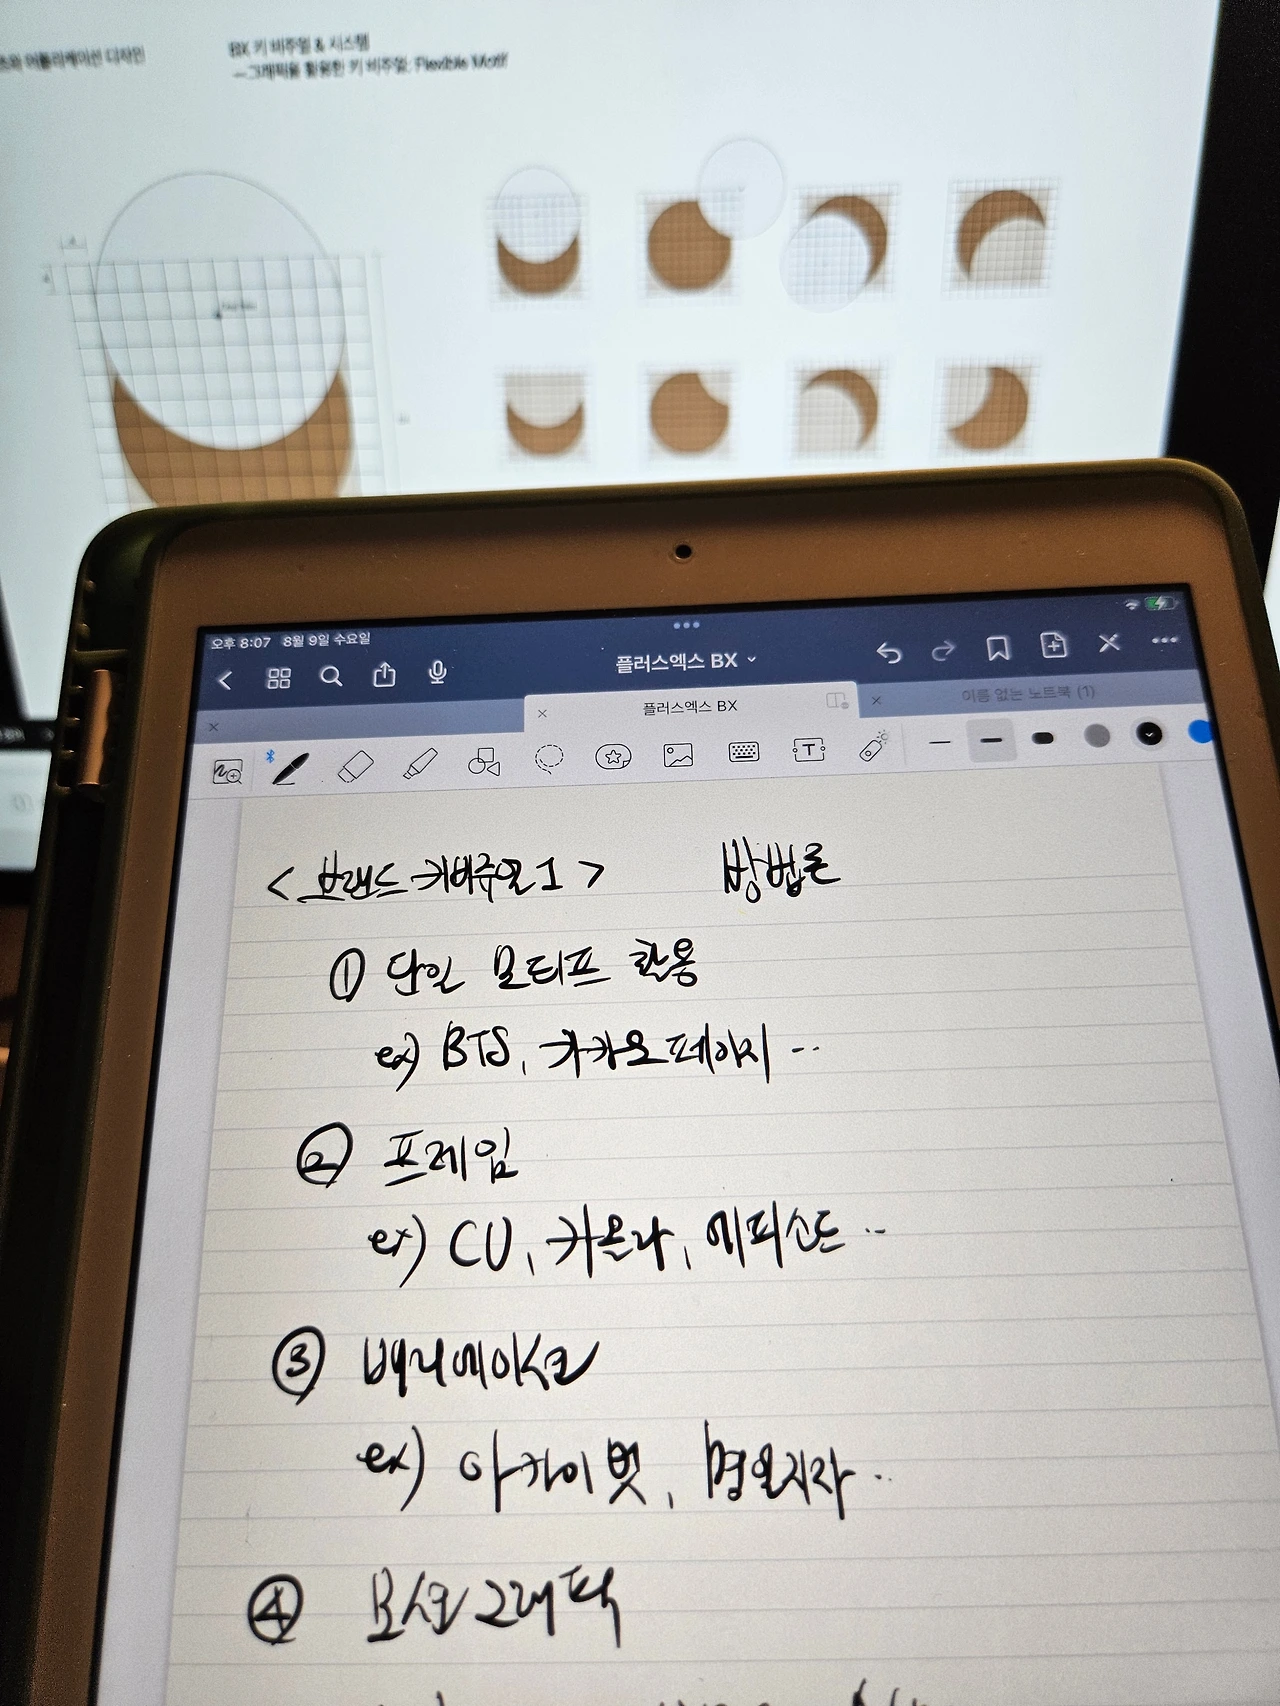 어플리케이션 디자인
BX 키 비주얼 & 시스템
—그래픽을 활용한 키 비주얼: Flexible Motif
오후 8:07 8월 9일 수요일
플러스엑스 BX
플러스엑스 BX
이름 없는 노트북 (1)
<브랜드 키비주얼1> 방법론
① 단일 모티프 활용
ex) BTS, 카카오페이지 ..
② 프레임
ex) CU, 카몬라, 에피소드 ..
③ 배리에이션
ex) 아카이벗, 명일지자 ..
④ 모션그래픽